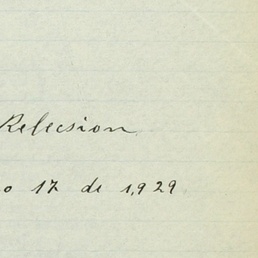 Relecsion
o 17 de 1,929